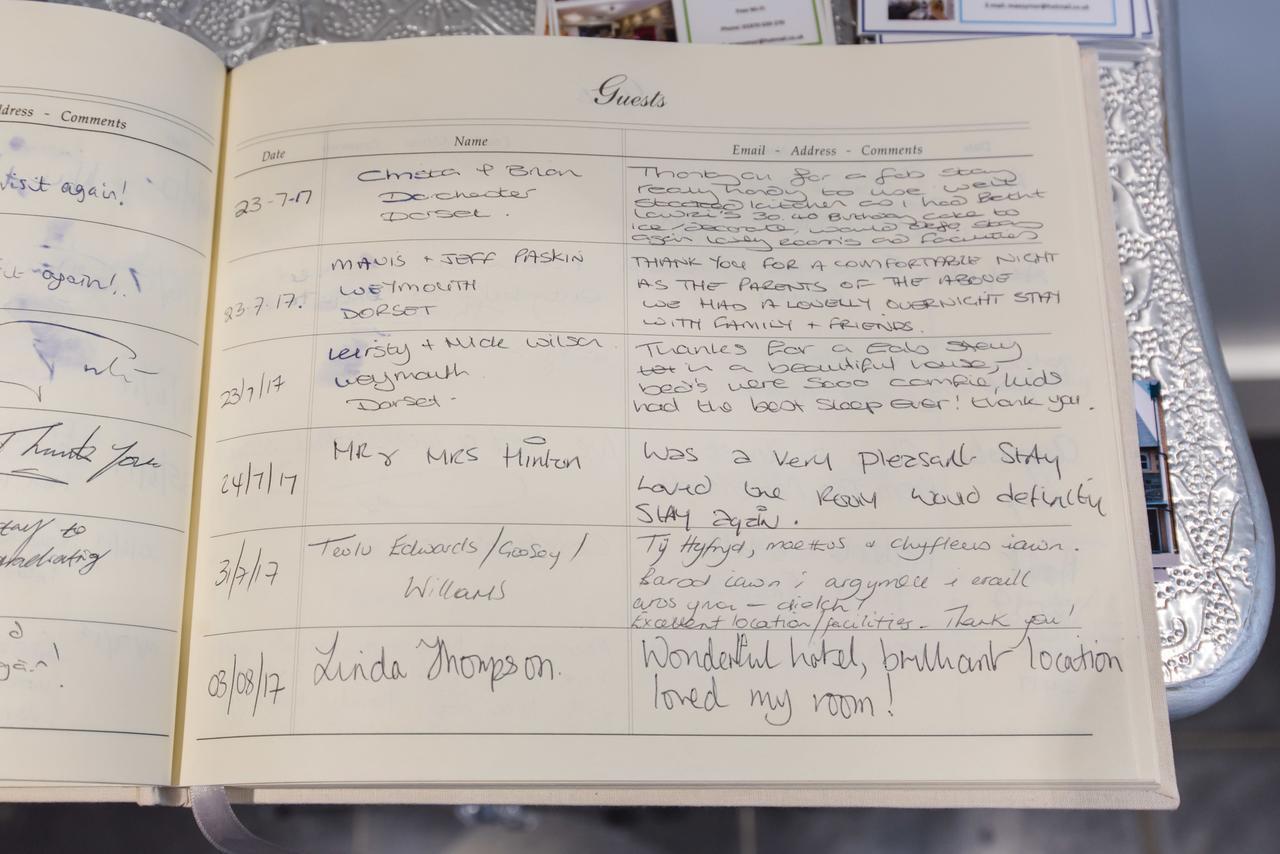 Free Wi-Fi
Address - Comments
visit again!
again!
Thank You
stay to
again!
Guests
Date
Name
Email - Address - Comments
23-7-17
Christa & Brian
Dorchester
Dorset.
Thankyou for a fab stay
really handy to use well
stocked kitchen as I had Betht
Lawri's 30.40 Birthday cake to
ice/decorate, would defo stay
again lovely rooms and facilities
23.7.17.
MAVIS + JEFF PASKIN
WEYMOUTH
DORSET
THANK YOU FOR A COMFORTABLE NIGHT
AS THE PARENTS OF THE ABOVE
WE HAD A LOVELLY OVERNIGHT STAY
WITH FAMILY + FRIENDS.
23/7/17
Kirsty + Nick Wilson
Weymouth
Dorset.
Thanks for a Fab stay
in a beautiful house,
bed's were sooo comfie, kids
had the best sleep ever! thank you.
24/7/17
MR & MRS Hinton
Was a very pleasant Stay
Loved the Room would definitly
Stay again.
31/7/17
Teulu Edwards/Goosey/
Williams
Tŷ Hyfryd, moethus a chyfleus iawn.
Barod iawn i argymell i eraill
aros yma - diolch!
Excellent location/facilities. Thank you!
03/08/17
Linda Thompson.
Wonderful hotel, brilliant location
loved my room!